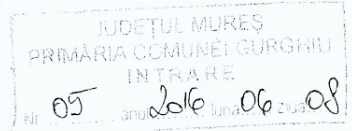 JUDEȚUL MUREȘ
PRIMĂRIA COMUNEI GURGHIU
INTRARE
Nr. 05 anul 2016 luna 06 ziua 08